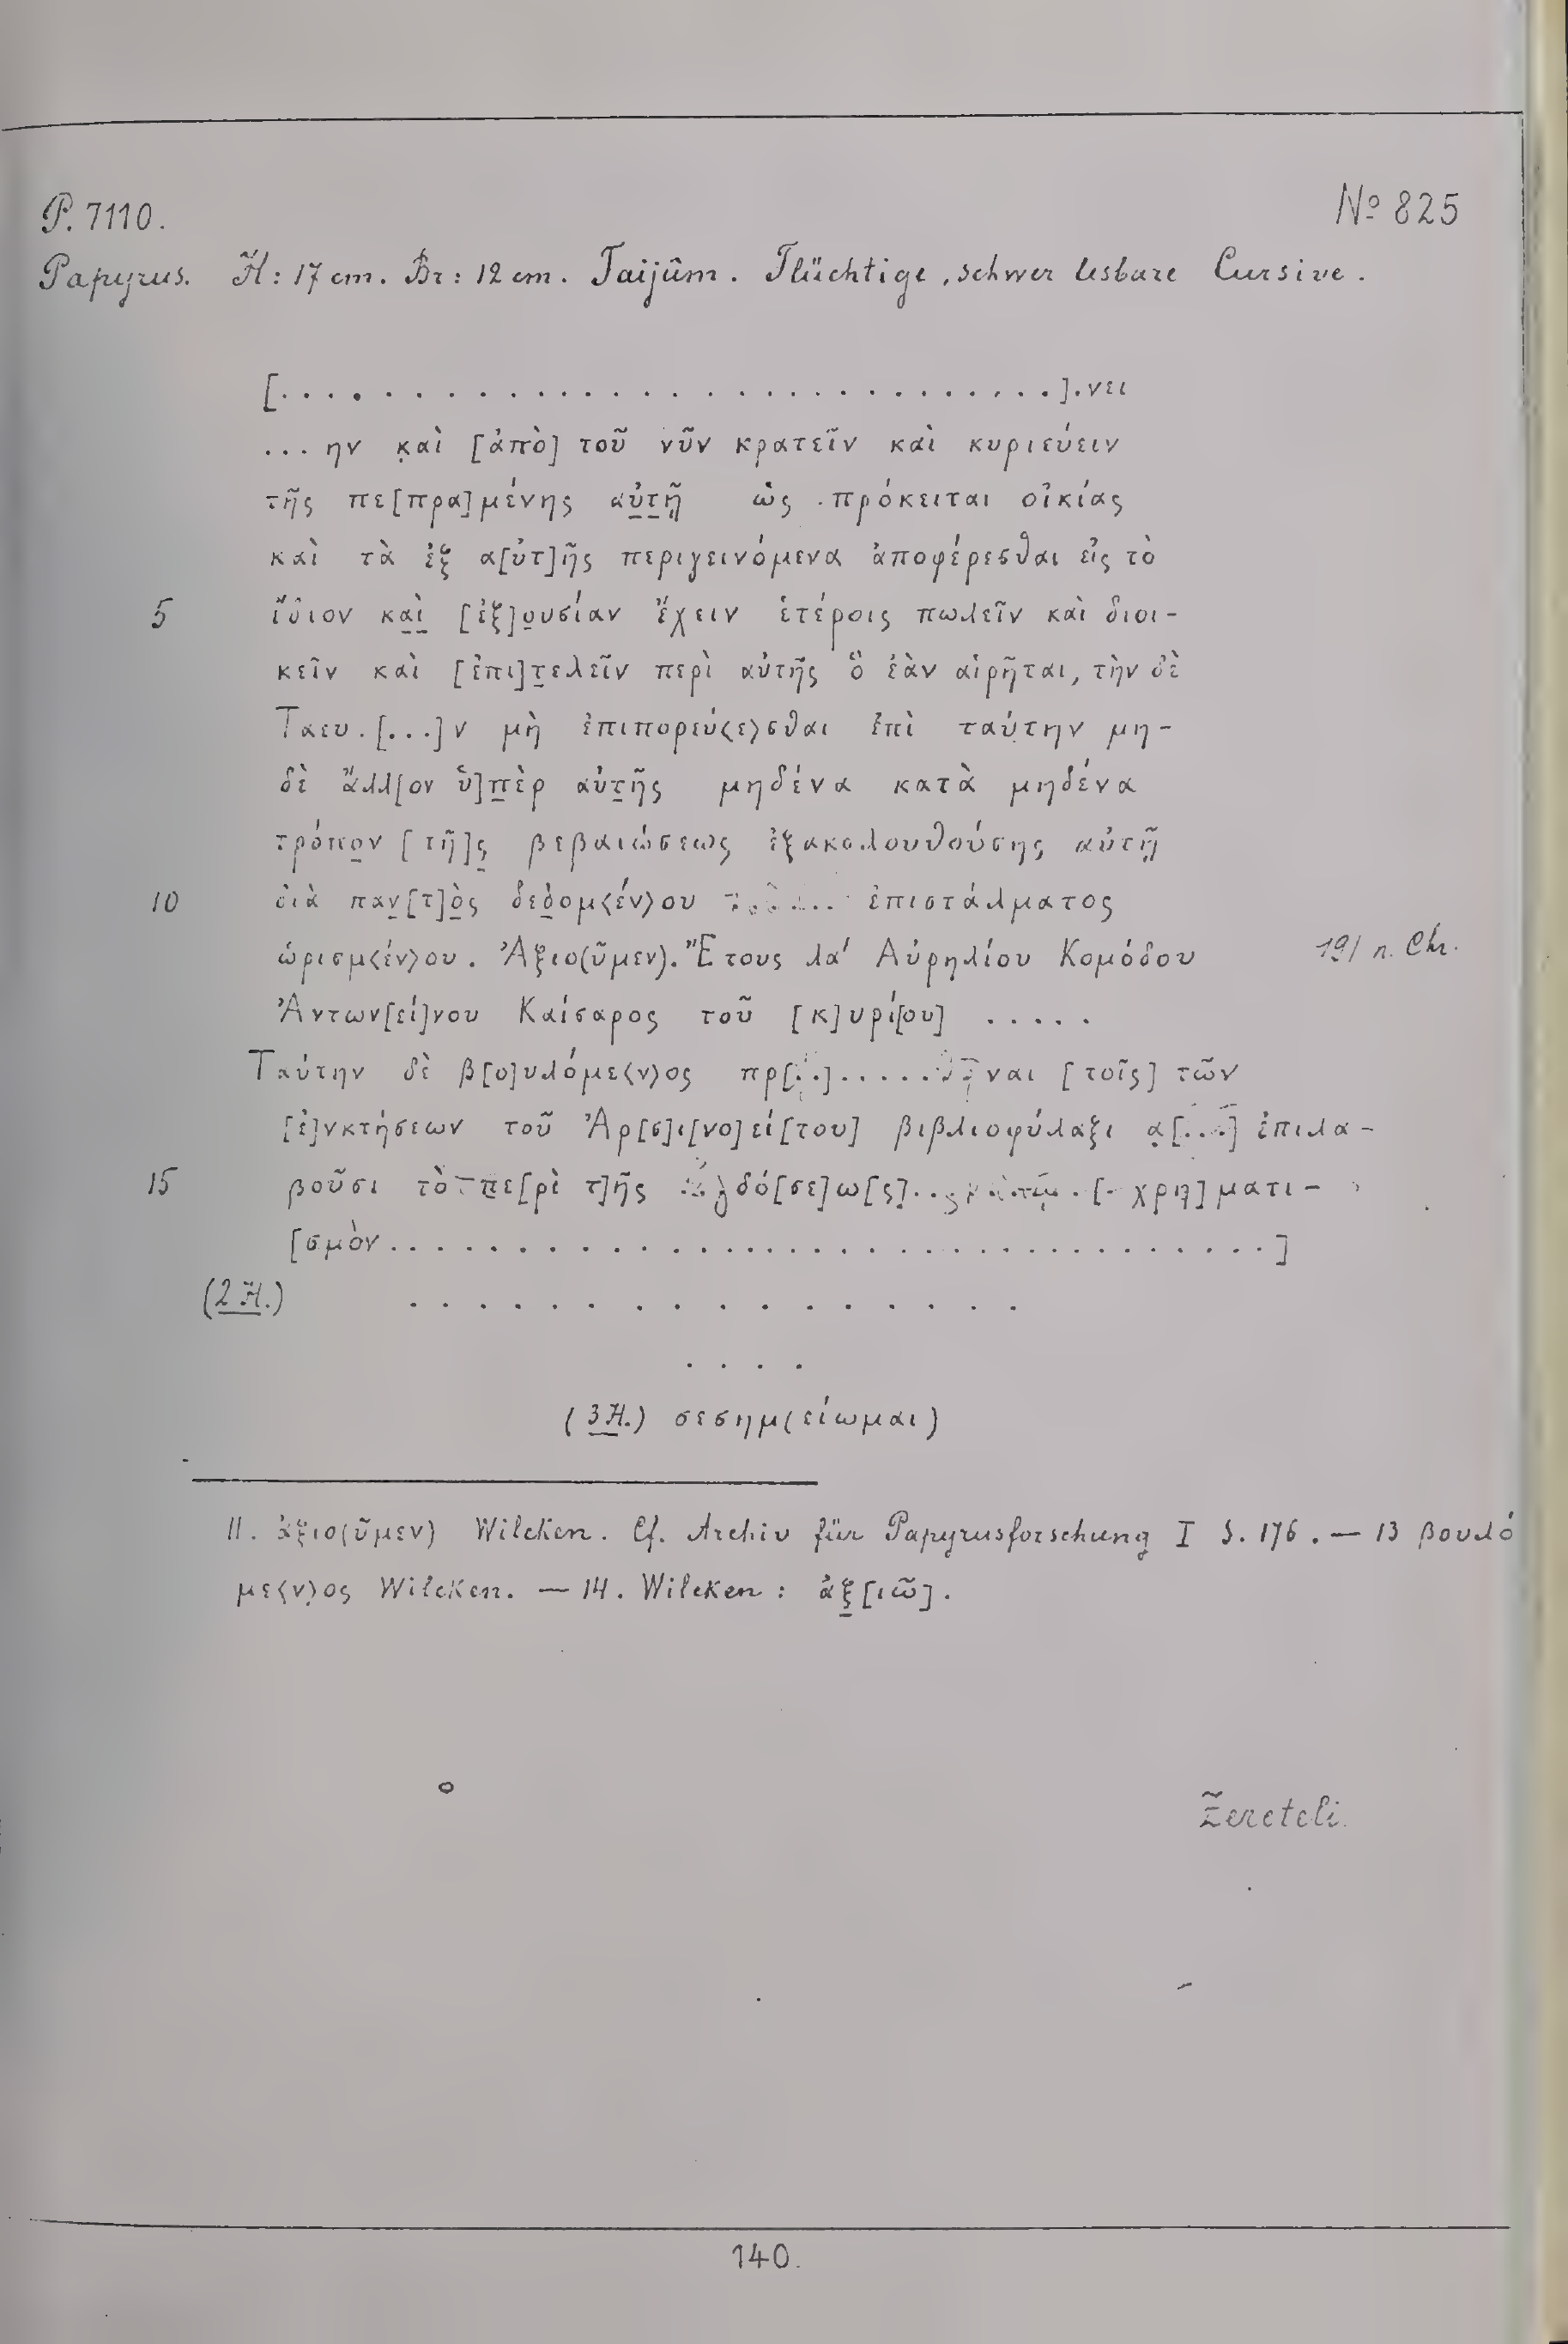 P. 7110.
№ 825
Papyrus. H: 17 cm. Br: 12 cm. Faijûm. Flüchtige, schwer lesbare Cursive.
[. . . . . . . . . . . . . . . . . . . . . . . . . .].νει
...ην κ̣αὶ [ἀπὸ] τοῦ νῦν κρ̣ατεῖν καὶ κυριεύειν
τῆς πε[πρα]μένης αὐ̣τ̣ῇ ὡς πρόκειται οἰκίας
καὶ τὰ ἐξ α[ὐτ]ῆς περιγεινόμενα ἀποφέρεσθαι εἰς τὸ
5 ἴδιον κα̣ὶ̣ [ἐξ]ο̣υσίαν ἔχειν ἑτέροις πωλεῖν καὶ διοι-
κεῖν καὶ [ἐπι]τ̣ελεῖν περὶ αὐτῆς ὃ ἐὰν αἱρῆται, τὴν δὲ
Ταευ.[...]ν μὴ ἐπιπορεύ<ε>σθαι ἐπὶ ταύτην μη-
δὲ ἄλλ[ον ὑ]π̣ὲρ αὐτ̣ῆς μηδένα κατὰ μηδένα
τρόπο̣ν [τῆ]ς̣ βεβαιώσεως ἐξακολουθούσης αὐτῇ
10 διὰ παν̣[τ]ὸ̣ς δεδ̣ομ<έν>ου ἐπιστάλματος
ὡρισμ<έν>ου. Ἀξιο(ῦμεν). Ἔτους λα' Αὐρηλίου Κομόδου
191 n. Chr.
Ἀντων[εί]νου Καίσαρος τοῦ [κ]υρί[ου] . . . . .
Ταύτην δὲ β[ο]υλόμε<ν>ος πρ[..]..... ναι [τοῖς] τῶν
[ἐ]νκτήσεων τοῦ Ἀρ[σ]ι[νο]εί[του] βιβλιοφύλαξι α̣[...] ἐπιλα-
15 βοῦσι τὸ π̣ε[ρὶ τ]ῆς δό[σε]ω[ς] χρη]ματι-
[σμὸν . . . . . . . . . . . . . . . . . . . . . . . . . . . .]
(2 H.) . . . . . . . . . . . . . . . . .
. . . .
(3 H.) σεσημ(είωμαι)
11. ἀξιο(ῦμεν) Wilcken. Cf. Archiv für Papyrusforschung I S. 176. — 13 βουλό
με<ν>ος Wilcken. — 14. Wilcken: ἀξ̣[ιῶ].
Zereteli.
140.